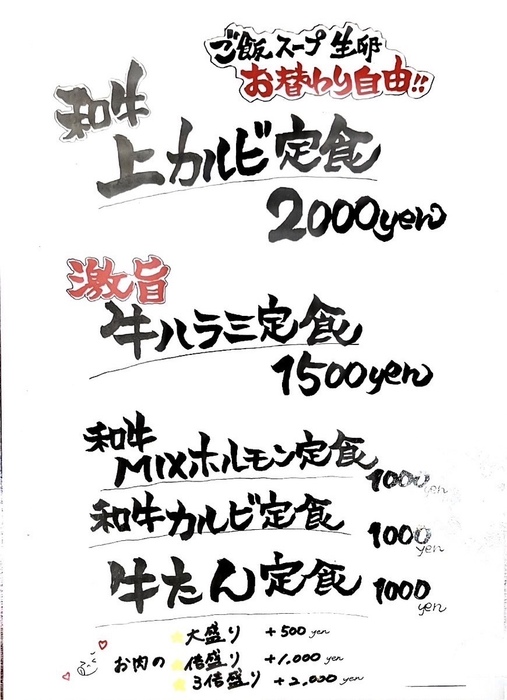 ご飯 スープ 生卵
お替わり自由!!
和牛
上カルビ定食
2000yen
激旨
牛ハラミ定食
1500yen
和牛
MIXホルモン定食
1000yen
和牛カルビ定食
1000yen
牛たん定食 1000yen
お肉の
大盛り +500yen
倍盛り +1.000yen
3倍盛り +2,000yen